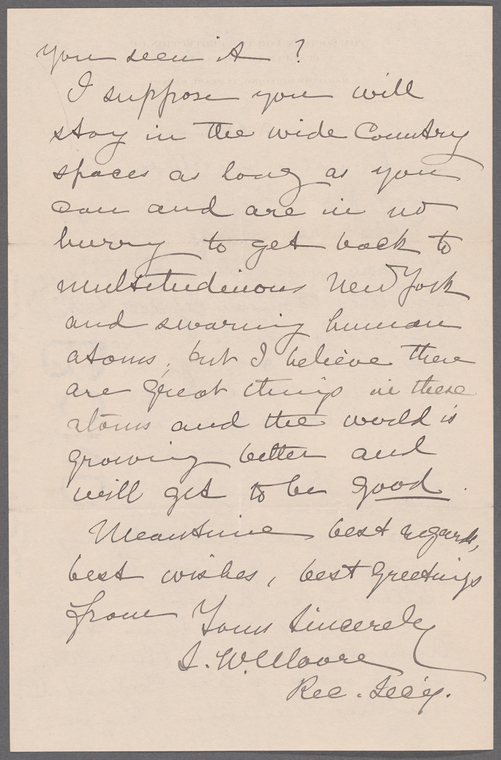 you seen it ?
I suppose you will
stay in the wide Country
spaces as long as you
can and are in no
hurry to get back to
multitudinous New York
and swarming human
atoms, but I believe there
are great things in these
atoms and the world is
growing better and
will get to be good.
Meantime best regards,
best wishes, best greetings
from Yours Sincerely
S. W. Moore
Rec. Sec'y.